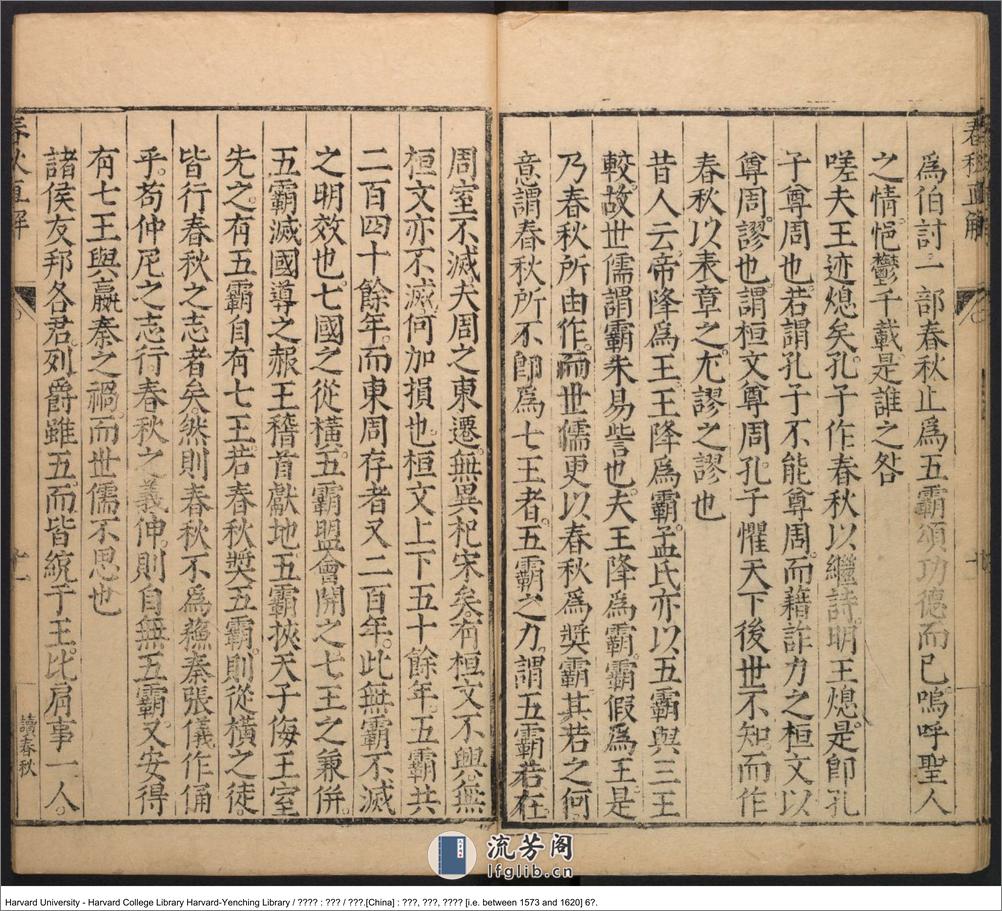 爲伯討一部春秋止爲五霸頌功德而已嗚呼聖人
之情悒鬱千載是誰之咎
嗟夫王迹熄矣孔子作春秋以繼詩明王熄是卽孔
子尊周也若謂孔子不能尊周而藉詐力之桓文以
尊周謬也謂桓文尊周孔子懼天下後世不知而作
春秋以表章之尤謬之謬也
昔人云帝降爲王王降爲霸孟氏亦以五霸與三王
較故世儒謂霸未易訾也夫王降爲霸霸假爲王是
乃春秋所由作而世儒更以春秋爲奬霸其若之何
意謂春秋所不卽爲七王者五霸之力謂五霸若在
春秋直解
周室不滅夫周之東遷無異杞宋矣有桓文不興無
桓文亦不滅何加損也桓文上下五十餘年五霸共
二百四十餘年而東周存者又二百年此無霸不滅
之明效也七國之從橫五霸盟會開之七王之兼併
五霸滅國導之赧王稽首獻地五霸挾天子侮王室
先之有五霸自有七王若春秋奬五霸則從橫之徒
皆行春秋之志者矣然則春秋不爲蘇秦張儀作俑
乎苟仲尼之志行春秋之義伸則自無五霸又安得
有七王與嬴秦之禍而世儒不思也
諸侯友邦各君列爵雖五而皆統于王比肩事一人
春秋直解
十一
讀春秋
流芳阁
lfglib.cn
Harvard University - Harvard College Library Harvard-Yenching Library / ???? : ??? / ???.[China] : ???, ???, ???? [i.e. between 1573 and 1620] 6?.